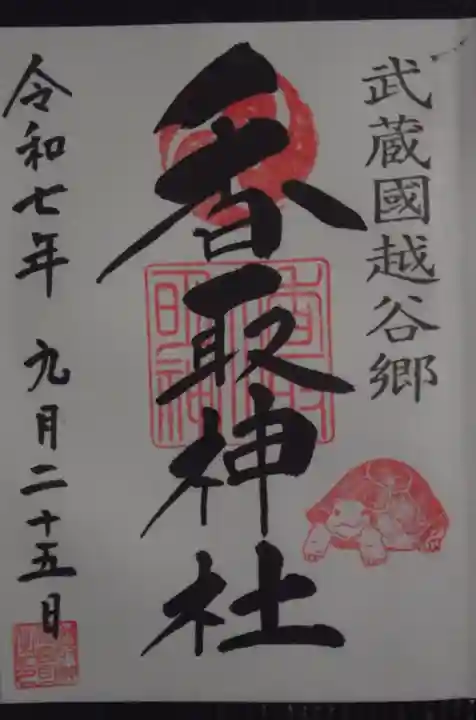 武蔵國越谷郷
香取神社
香取明神
令和七年 九月二十五日